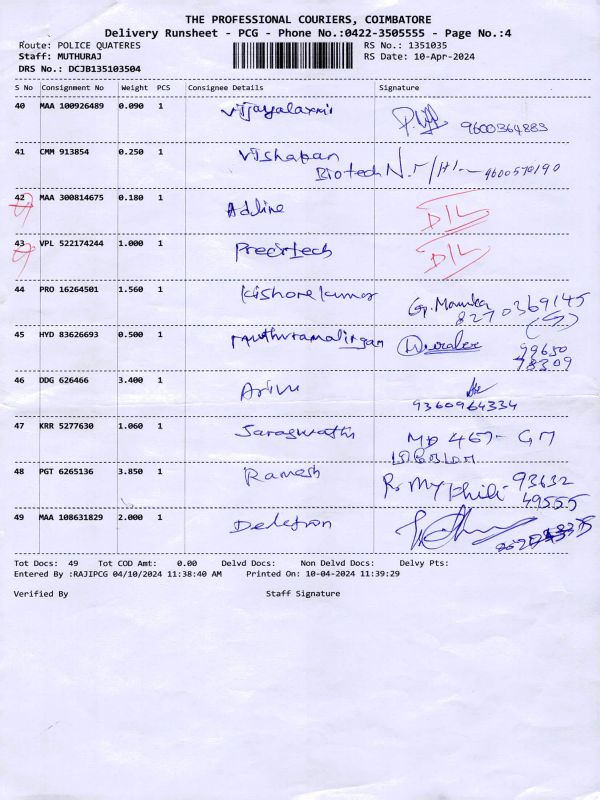 THE PROFESSIONAL COURIERS, COIMBATORE
Delivery Runsheet - PCG - Phone No.:0422-3505555 - Page No.:4
Route: POLICE QUATERES RS No.: 1351035
Staff: MUTHURAJ RS Date: 10-Apr-2024
DRS No.: DCJB135103504
S No Consignment No Weight PCS Consignee Details Signature
40 MAA 100926489 0.090 1 Vijayalaxmi 9600364883
41 CMM 913854 0.250 1 Vishapan
Biotech 9600570190
42 MAA 300814675 0.180 1 Adline D/L
43 VPL 522174244 1.000 1 Precitech D/L
44 PRO 16264501 1.560 1 Kishorekumar 8270369145
45 HYD 83626693 0.500 1 muthuramalingam 99650
78309
46 DDG 626466 3.400 1 Arivu
9360964334
47 KRR 5277630 1.060 1 Saraswathi
48 PGT 6265136 3.850 1 Ramesh 93632
49555
49 MAA 108631829 2.000 1
Tot Docs: 49 Tot COD Amt: 0.00 Delvd Docs: Non Delvd Docs: Delvy Pts:
Entered By :RAJIPCG 04/10/2024 11:38:40 AM Printed On: 10-04-2024 11:39:29
Verified By Staff Signature